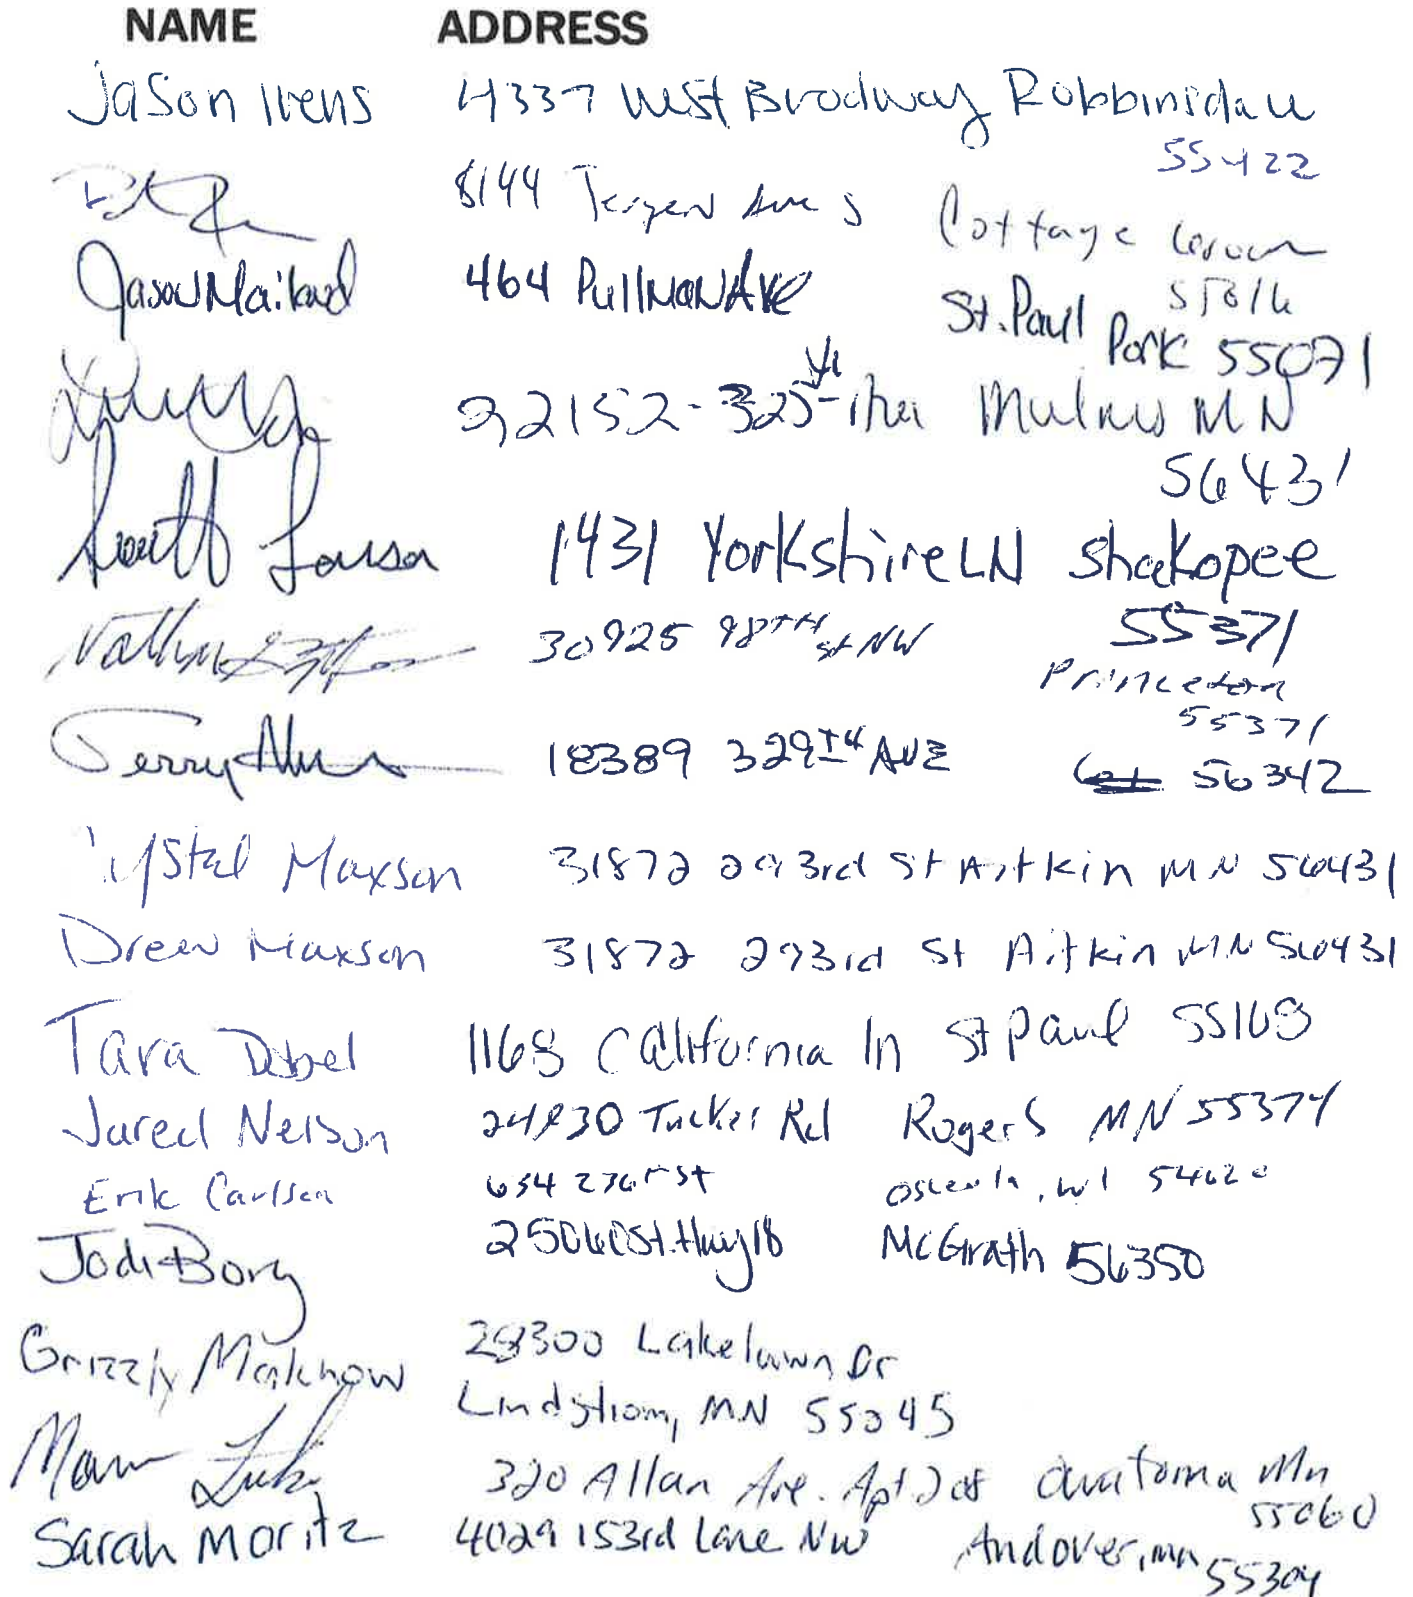 NAME ADDRESS
Jason Ivens 4337 West Brodway Robbinsdale
55422
8144 Ave S Cottage Grove
55016
Jason Mailand 464 Pullman Ave St. Paul Park 55071
22152-325th MN
56431
Scott Larson 1431 Yorkshire LN Shakopee
55371
Nathan 30925 98TH St NW Princeton
55371
Jerry 18389 329TH AVE 56342
Maxson 31872 293rd St Aitkin MN 56431
Drew Maxson 31872 293rd St Aitkin MN 56431
Tara 1168 California ln St Paul 55108
Jared Nelson Tucker Rd Rogers MN 55374
Erik Carlson 654 St Osceola, WI 54020
Jodi Borg St. Hwy 18 McGrath 56350
Grizzly Maknow 28300 Lakelawn Dr
Lindstrom, MN 55045
320 Allan Ave. Apt Owatonna Mn
55060
Sarah Moritz 4029 153rd Lane NW Andover, mn
55304